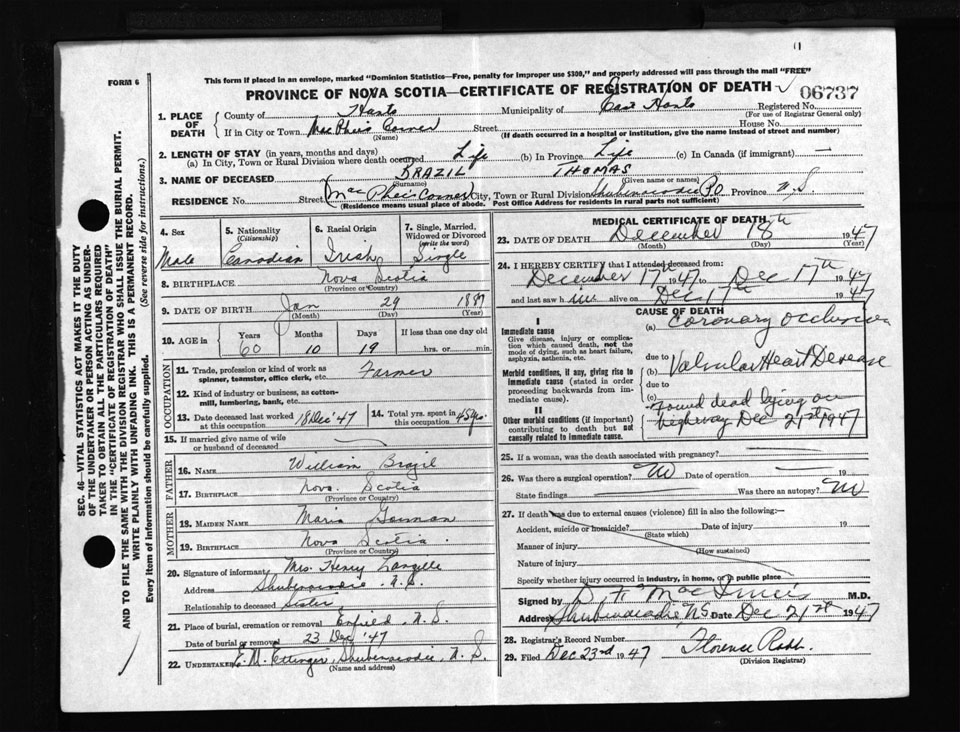 FORM 6
This form if placed in an envelope, marked "Dominion Statistics—Free, penalty for improper use $300," and properly addressed will pass through the mail "FREE"
PROVINCE OF NOVA SCOTIA—CERTIFICATE OF REGISTRATION OF DEATH 06737
1. PLACE OF DEATH
County of Hants Municipality of East Hants Registered No.
(For use of Registrar General only)
If in City or Town MacPhee's Corner Street House No.
(Name) (If death occurred in a hospital or institution, give the name instead of street and number)
2. LENGTH OF STAY (in years, months and days)
(a) In City, Town or Rural Division where death occurred Life (b) In Province Life (c) In Canada (if immigrant) —
3. NAME OF DECEASED BRAZIL THOMAS
(Surname) (Given name or names)
RESIDENCE No. Street MacPhee's Corner City, Town or Rural Division Shubenacadie PO Province N.S.
(Residence means usual place of abode. Post Office Address for residents in rural parts not sufficient)
4. Sex
Male
5. Nationality
(Citizenship)
Canadian
6. Racial Origin
Irish
7. Single, Married, Widowed or Divorced
(write the word)
Single
8. BIRTHPLACE Nova Scotia
(Province or Country)
9. DATE OF BIRTH Jan 29 1887
(Month) (Day) (Year)
10. AGE in
Years Months Days If less than one day old
60 10 19 hrs. or min.
OCCUPATION
11. Trade, profession or kind of work as
spinner, teamster, office clerk, etc. Farmer
12. Kind of industry or business, as cotton-
mill, lumbering, bank, etc.
13. Date deceased last worked
at this occupation 18 Dec '47
14. Total yrs. spent in
this occupation 45 yrs.
15. If married give name of wife
or husband of deceased
FATHER
16. NAME William Brazil
17. BIRTHPLACE Nova Scotia
(Province or Country)
MOTHER
18. MAIDEN NAME Maria Gorman
19. BIRTHPLACE Nova Scotia
(Province or Country)
20. Signature of informant Mrs. Henry
Address Shubenacadie N.S.
Relationship to deceased Sister
21. Place of burial, cremation or removal Enfield N.S.
Date of burial or removal 23 Dec '47
22. Undertaker E. M. Ettinger, Shubenacadie, N.S.
(Name and address)
MEDICAL CERTIFICATE OF DEATH
23. DATE OF DEATH December 18th 1947
(Month) (Day) (Year)
24. I HEREBY CERTIFY that I attended deceased from:
December 17th 1947 to Dec 17th 1947
and last saw h im alive on Dec 17th 1947
CAUSE OF DEATH
I
Immediate cause
Give disease, injury or complica-
tion which caused death, not the
mode of dying, such as heart failure,
asphyxia, asthenia, etc.
(a) Coronary occlusion
Morbid conditions, if any, giving rise to
immediate cause (stated in order
proceeding backwards from im-
mediate cause).
due to
(b) Valvular Heart Disease
due to
(c)
II
Other morbid conditions (if important)
contributing to death but not
causally related to immediate cause.
Found dead lying on
highway Dec 21st 1947
25. If a woman, was the death associated with pregnancy?
26. Was there a surgical operation? No Date of operation 19
State findings Was there an autopsy? No
27. If death was due to external causes (violence) fill in also the following:—
Accident, suicide or homicide? Date of injury 19
(State which)
Manner of injury
(How sustained)
Nature of injury
Specify whether injury occurred in industry, in home, or in public place
Signed by D. F. MacInnis M.D.
Address Shubenacadie, NS Date Dec 21st 1947
28. Registrar's Record Number
29. Filed Dec 23rd 1947 Florence
(Division Registrar)
SEC. 46—VITAL STATISTICS ACT MAKES IT THE DUTY
OF THE UNDERTAKER OR PERSON ACTING AS UNDER-
TAKER TO OBTAIN ALL THE PARTICULARS REQUIRED
IN THE "CERTIFICATE OF REGISTRATION OF DEATH"
AND TO FILE THE SAME WITH THE DIVISION REGISTRAR WHO SHALL ISSUE THE BURIAL PERMIT.
WRITE PLAINLY WITH UNFADING INK. THIS IS A PERMANENT RECORD.
Every item of information should be carefully supplied. (See reverse side for instructions.)